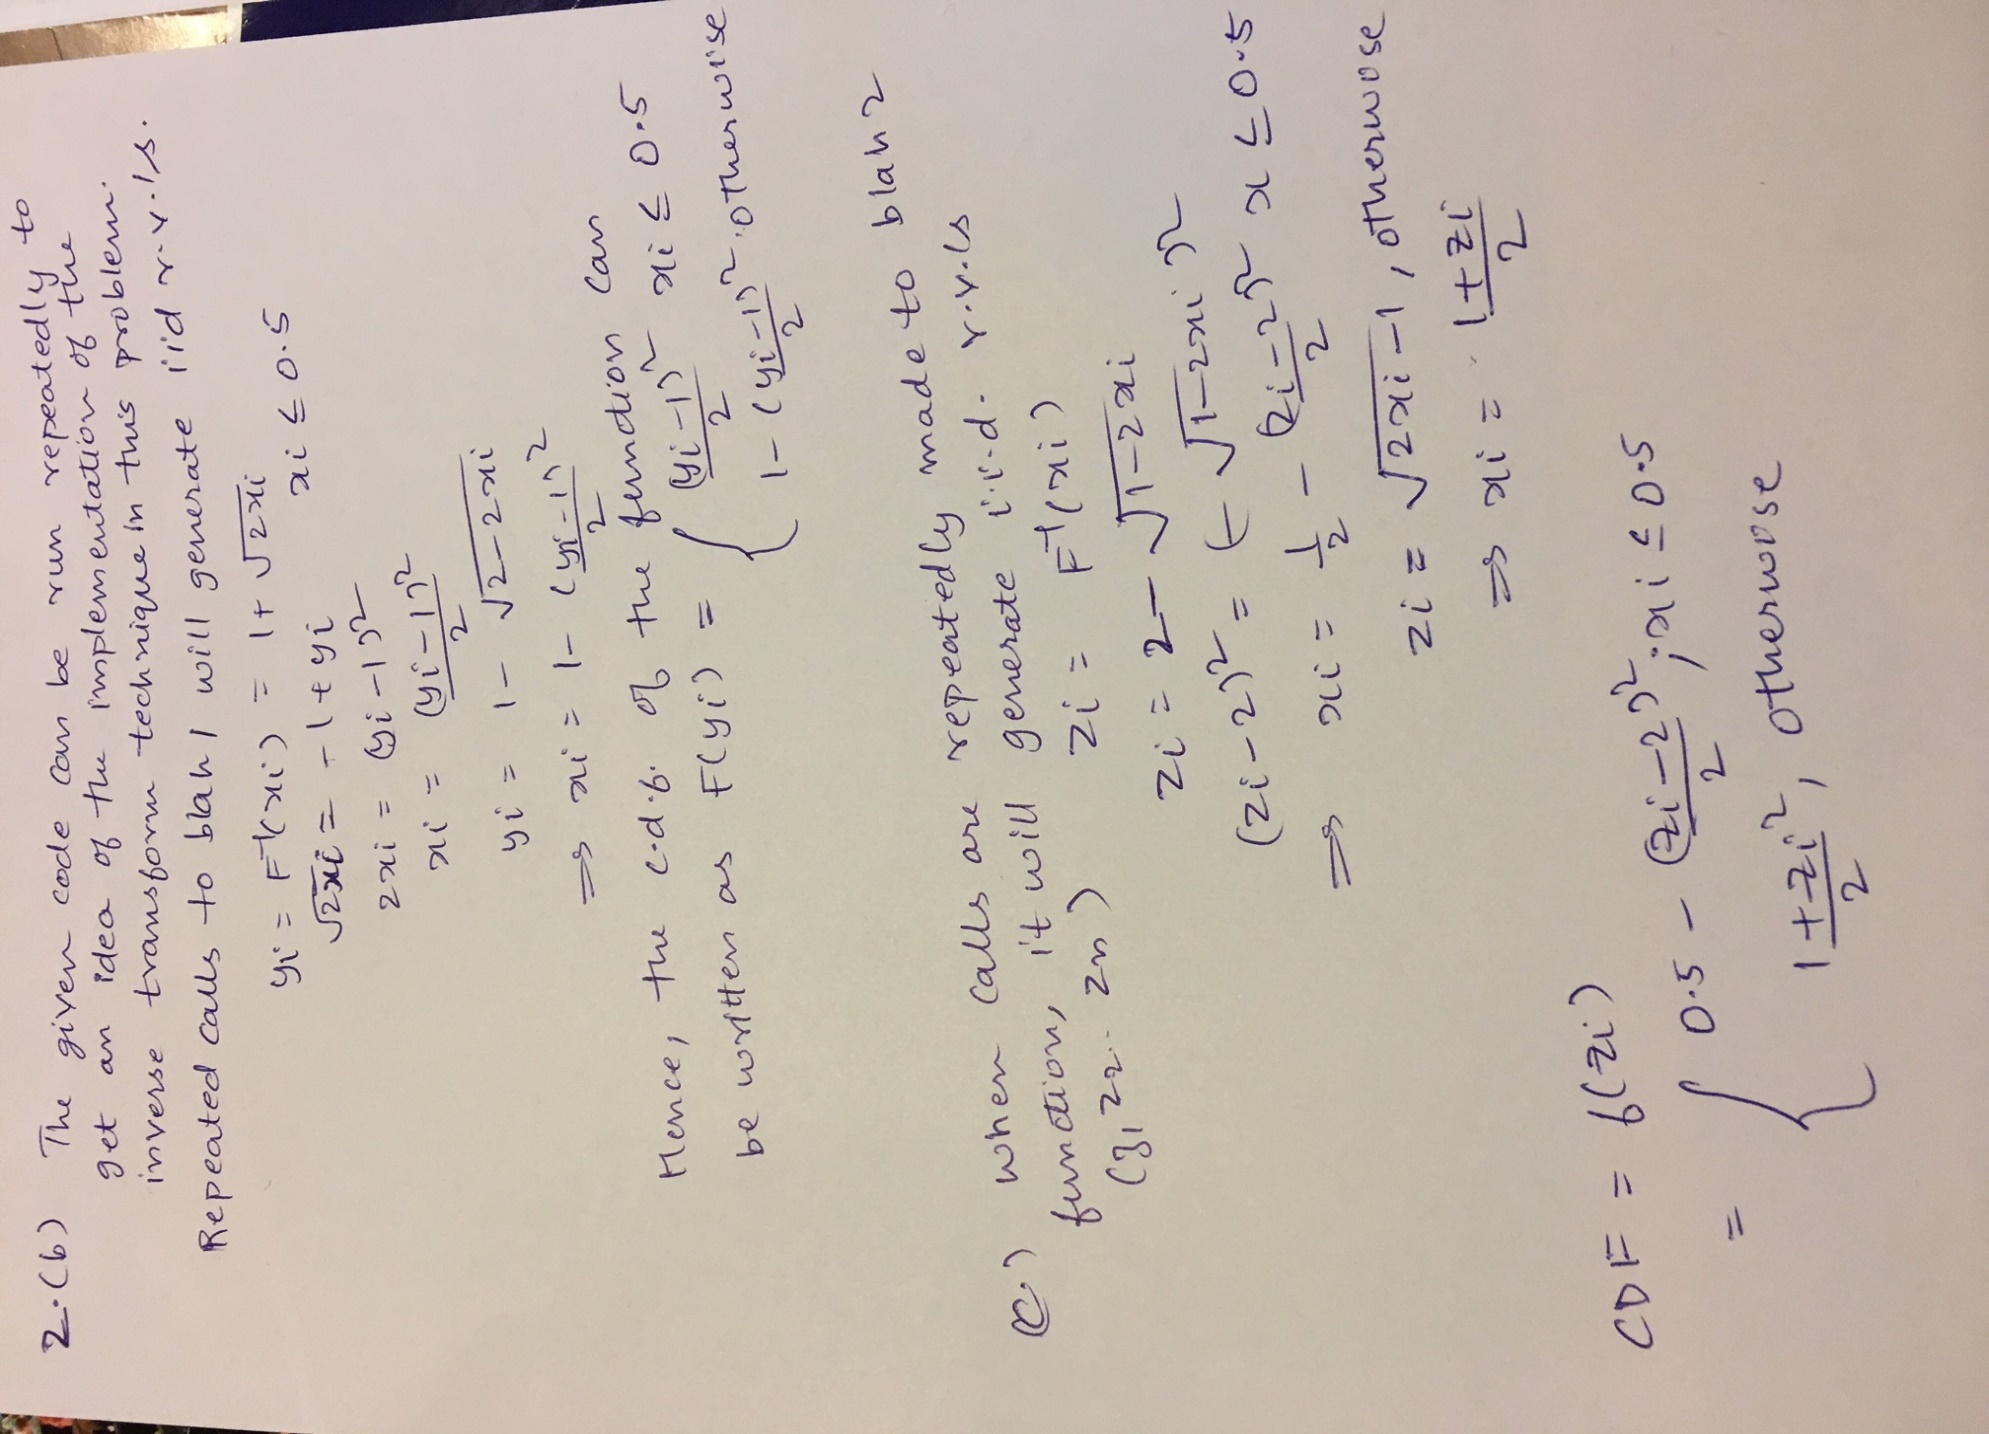 2.(b) The given code can be run repeatedly to
get an idea of the implementation of the
inverse transform technique in this problem.
Repeated calls to blah1 will generate iid r.v.'s.
yi = F⁻¹(xi) = 1 + √2xi
√2xi = -1 + yi xi ≤ 0.5
2xi = (yi - 1)²
xi = (yi - 1)²/2
yi = 1 - √2-2xi
⇒ xi = 1 - (yi - 1)²/2
Hence, the c.d.f. of the function can
be written as F(yi) = { (yi - 1)²/2 xi ≤ 0.5
1 - (yi - 1)²/2, otherwise
(c.) when calls are repeatedly made to blah2
function, it will generate i.i.d. r.v.'s
(z1 z2.. zn) zi = F⁻¹(xi)
zi = 2 - √1-2xi
(zi - 2)² = (-√1-2xi)²
⇒ xi = 1/2 - (zi - 2)²/2 x ≤ 0.5
zi = √2xi - 1, otherwose
⇒ xi = 1 + zi/2
CDF = f(zi)
= { 0.5 - (zi - 2)²/2 ; xi ≤ 0.5
1 + zi²/2, otherwose